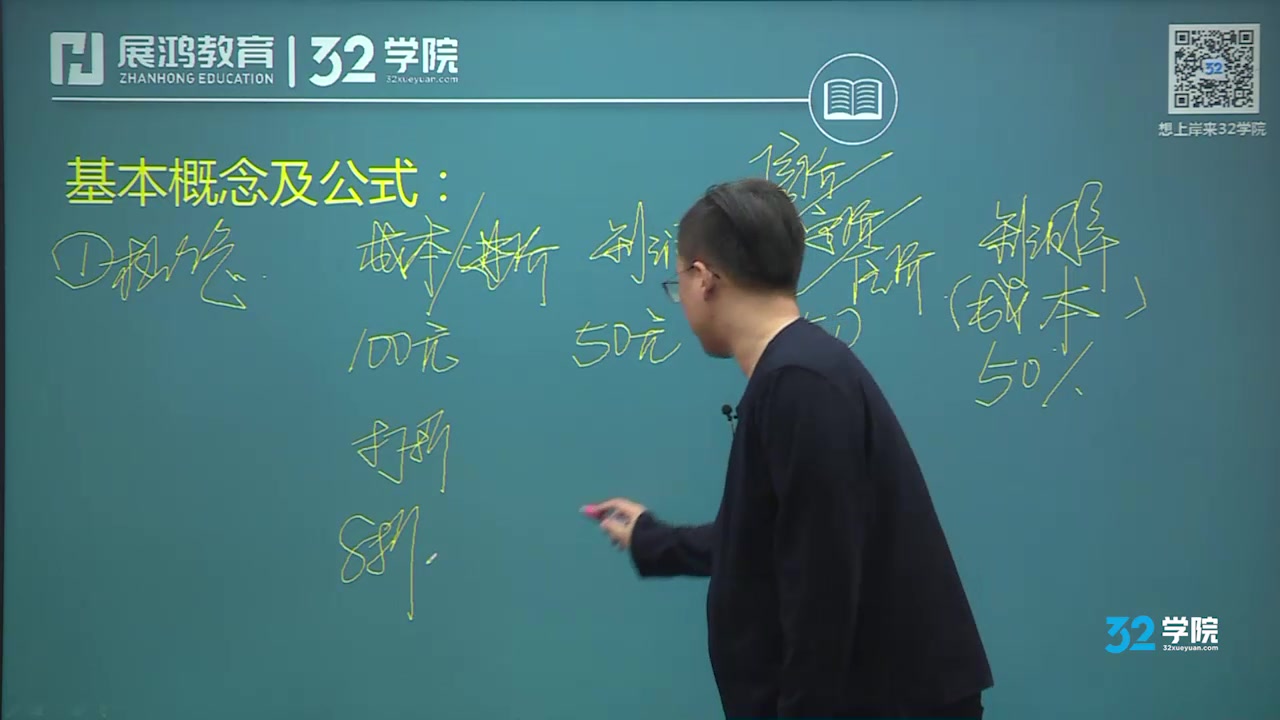 展鸿教育 | 32学院
ZHANHONG EDUCATION 32xueyuan.com
32
想上岸来32学院
基本概念及公式：
①概念 成本/进价 利 定价/售价 利润率
(成本)
100元 50元 50%
打折
8折
32学院
32xueyuan.com